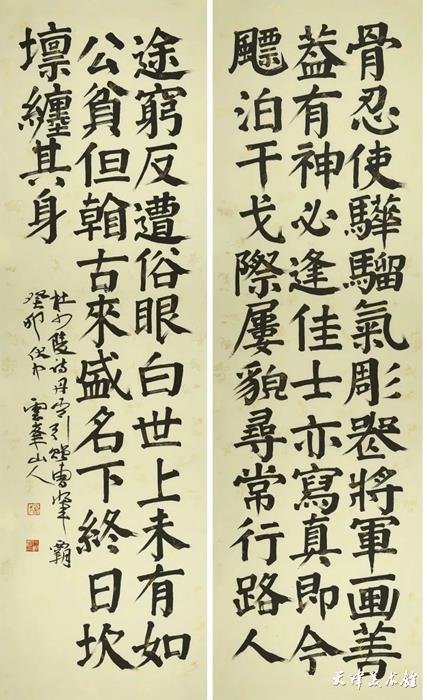 骨忍使驊騮氣彫喪將軍画善
葢有神必逢佳士亦寫真即今
飃泊干戈際屢貌尋常行路人
途窮反遭俗眼白世上未有如
公貧但看古來盛名下終日坎
壈纏其身
杜少陵詩丹青引贈曹將軍霸
癸卯伏中雲峯山人
天津美術館